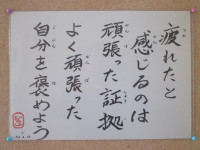 疲れたと
感じるのは
頑張った証拠
よく頑張った
自分を褒めよう